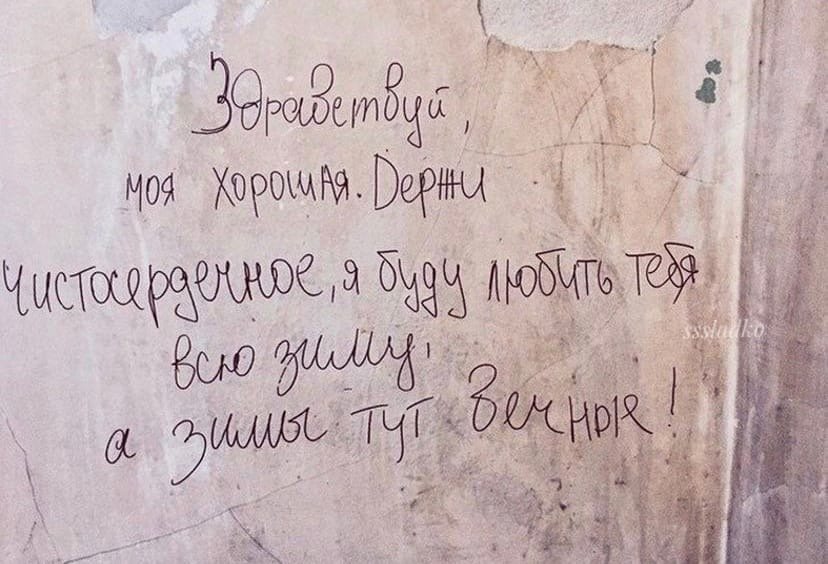 Здравствуй,
моя хорошая. Держи
чистосердечное, я буду любить тебя
всю зиму,
а зимы тут вечные!
sssladko